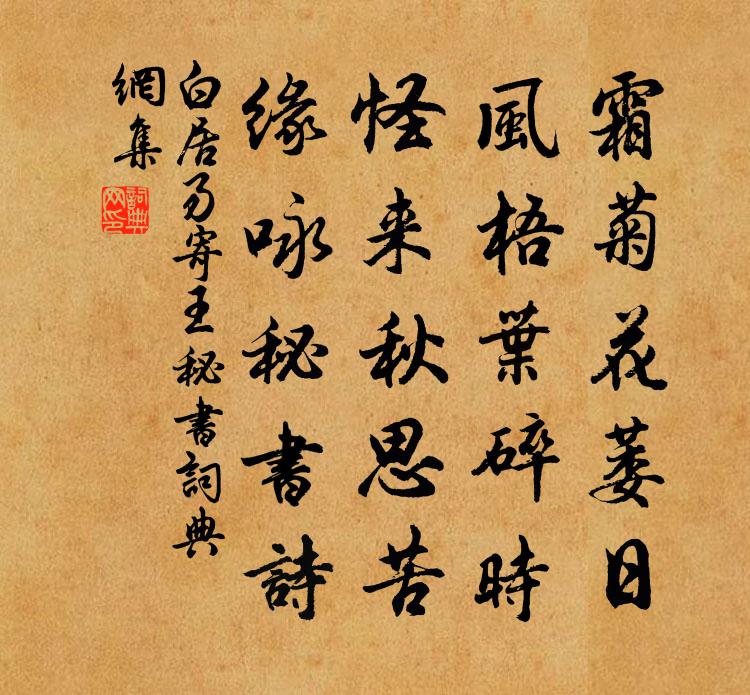 霜菊花萎日
風梧葉碎時
怪来秋思苦
緣咏秘書詩
白居易寄王秘書詞典
網集
詞典
网印